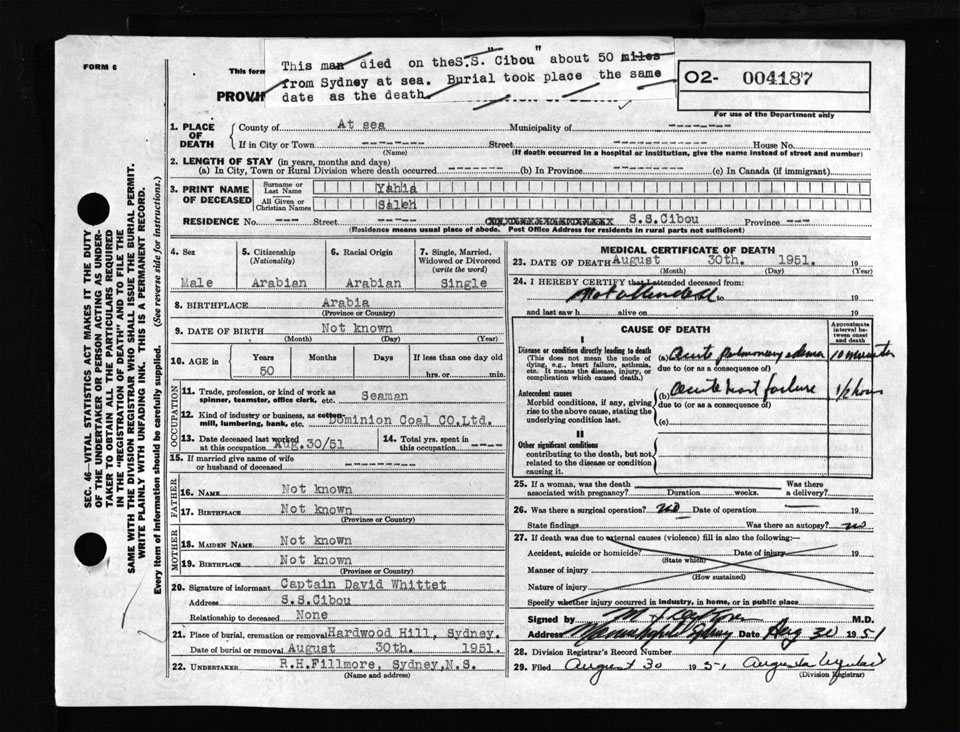 FORM 6
This form
This man died on the S.S. "Cibou" about 50 miles
from Sydney at sea. Burial took place the same
date as the death.
PROVI
O2- 004187
For use of the Department only
1. PLACE OF DEATH
County of At sea Municipality of --------
If in City or Town ------- Street ------------ House No.
(Name) (If death occurred in a hospital or institution, give the name instead of street and number)
2. LENGTH OF STAY (in years, months and days)
(a) In City, Town or Rural Division where death occurred -------- (b) In Province ------- (c) In Canada (if immigrant)
3. PRINT NAME OF DECEASED
Surname or Last Name Yahia
All Given or Christian Names Saleh
RESIDENCE No. --- Street ----- S.S.Cibou Province ---
(Residence means usual place of abode. Post Office Address for residents in rural parts not sufficient)
4. Sex
Male
5. Citizenship (Nationality)
Arabian
6. Racial Origin
Arabian
7. Single, Married, Widowed or Divorced (write the word)
Single
8. BIRTHPLACE Arabia
(Province or Country)
9. DATE OF BIRTH Not known
(Month) (Day) (Year)
10. AGE in Years Months Days If less than one day old
50 hrs. or min.
OCCUPATION
11. Trade, profession, or kind of work as spinner, teamster, office clerk, etc. Seaman
12. Kind of industry or business, as cotton-mill, lumbering, bank, etc. Dominion Coal CO.Ltd.
13. Date deceased last worked at this occupation Aug.30/51
14. Total yrs. spent in this occupation ----
15. If married give name of wife or husband of deceased ---------
FATHER
16. NAME Not known
17. BIRTHPLACE Not known
(Province or Country)
MOTHER
18. MAIDEN NAME Not known
19. BIRTHPLACE Not known
(Province or Country)
20. Signature of informant Captain David Whittet
Address S.S.Cibou
Relationship to deceased None
21. Place of burial, cremation or removal Hardwood Hill, Sydney.
Date of burial or removal August 30th. 1951.
22. UNDERTAKER R.H.Fillmore, Sydney,N.S.
(Name and address)
MEDICAL CERTIFICATE OF DEATH
23. DATE OF DEATH August 30th. 1951. 19
(Month) (Day) (Year)
24. I HEREBY CERTIFY that I attended deceased from:
Not attended
to 19
and last saw h alive on 19
CAUSE OF DEATH
Approximate interval between onset and death
I
Disease or condition directly leading to death
(This does not mean the mode of dying, e.g., heart failure, asthenia, etc. It means the disease, injury, or complication which caused death.)
(a) Acute pulmonary edema 10 minutes
due to (or as a consequence of)
Antecedent causes
Morbid conditions, if any, giving rise to the above cause, stating the underlying condition last.
(b) Acute heart failure 1/2 hour
due to (or as a consequence of)
(c)
II
Other significant conditions
contributing to the death, but not related to the disease or condition causing it.
25. If a woman, was the death associated with pregnancy? Duration weeks. Was there a delivery?
26. Was there a surgical operation? No Date of operation 19
State findings Was there an autopsy? no
27. If death was due to external causes (violence) fill in also the following:—
Accident, suicide or homicide? Date of injury 19
(State which)
Manner of injury
(How sustained)
Nature of injury
Specify whether injury occurred in industry, in home, or in public place
Signed by M.D.
Address Sydney Date Aug 30 1951
28. Division Registrar's Record Number
29. Filed August 30 1951 Augusta
(Division Registrar)
SEC. 46—VITAL STATISTICS ACT MAKES IT THE DUTY
OF THE UNDERTAKER OR PERSON ACTING AS UNDER-
TAKER TO OBTAIN ALL THE PARTICULARS REQUIRED
IN THE "REGISTRATION OF DEATH" AND TO FILE THE
SAME WITH THE DIVISION REGISTRAR WHO SHALL ISSUE THE BURIAL PERMIT.
WRITE PLAINLY WITH UNFADING INK. THIS IS A PERMANENT RECORD.
Every item of information should be carefully supplied. (See reverse side for instructions.)